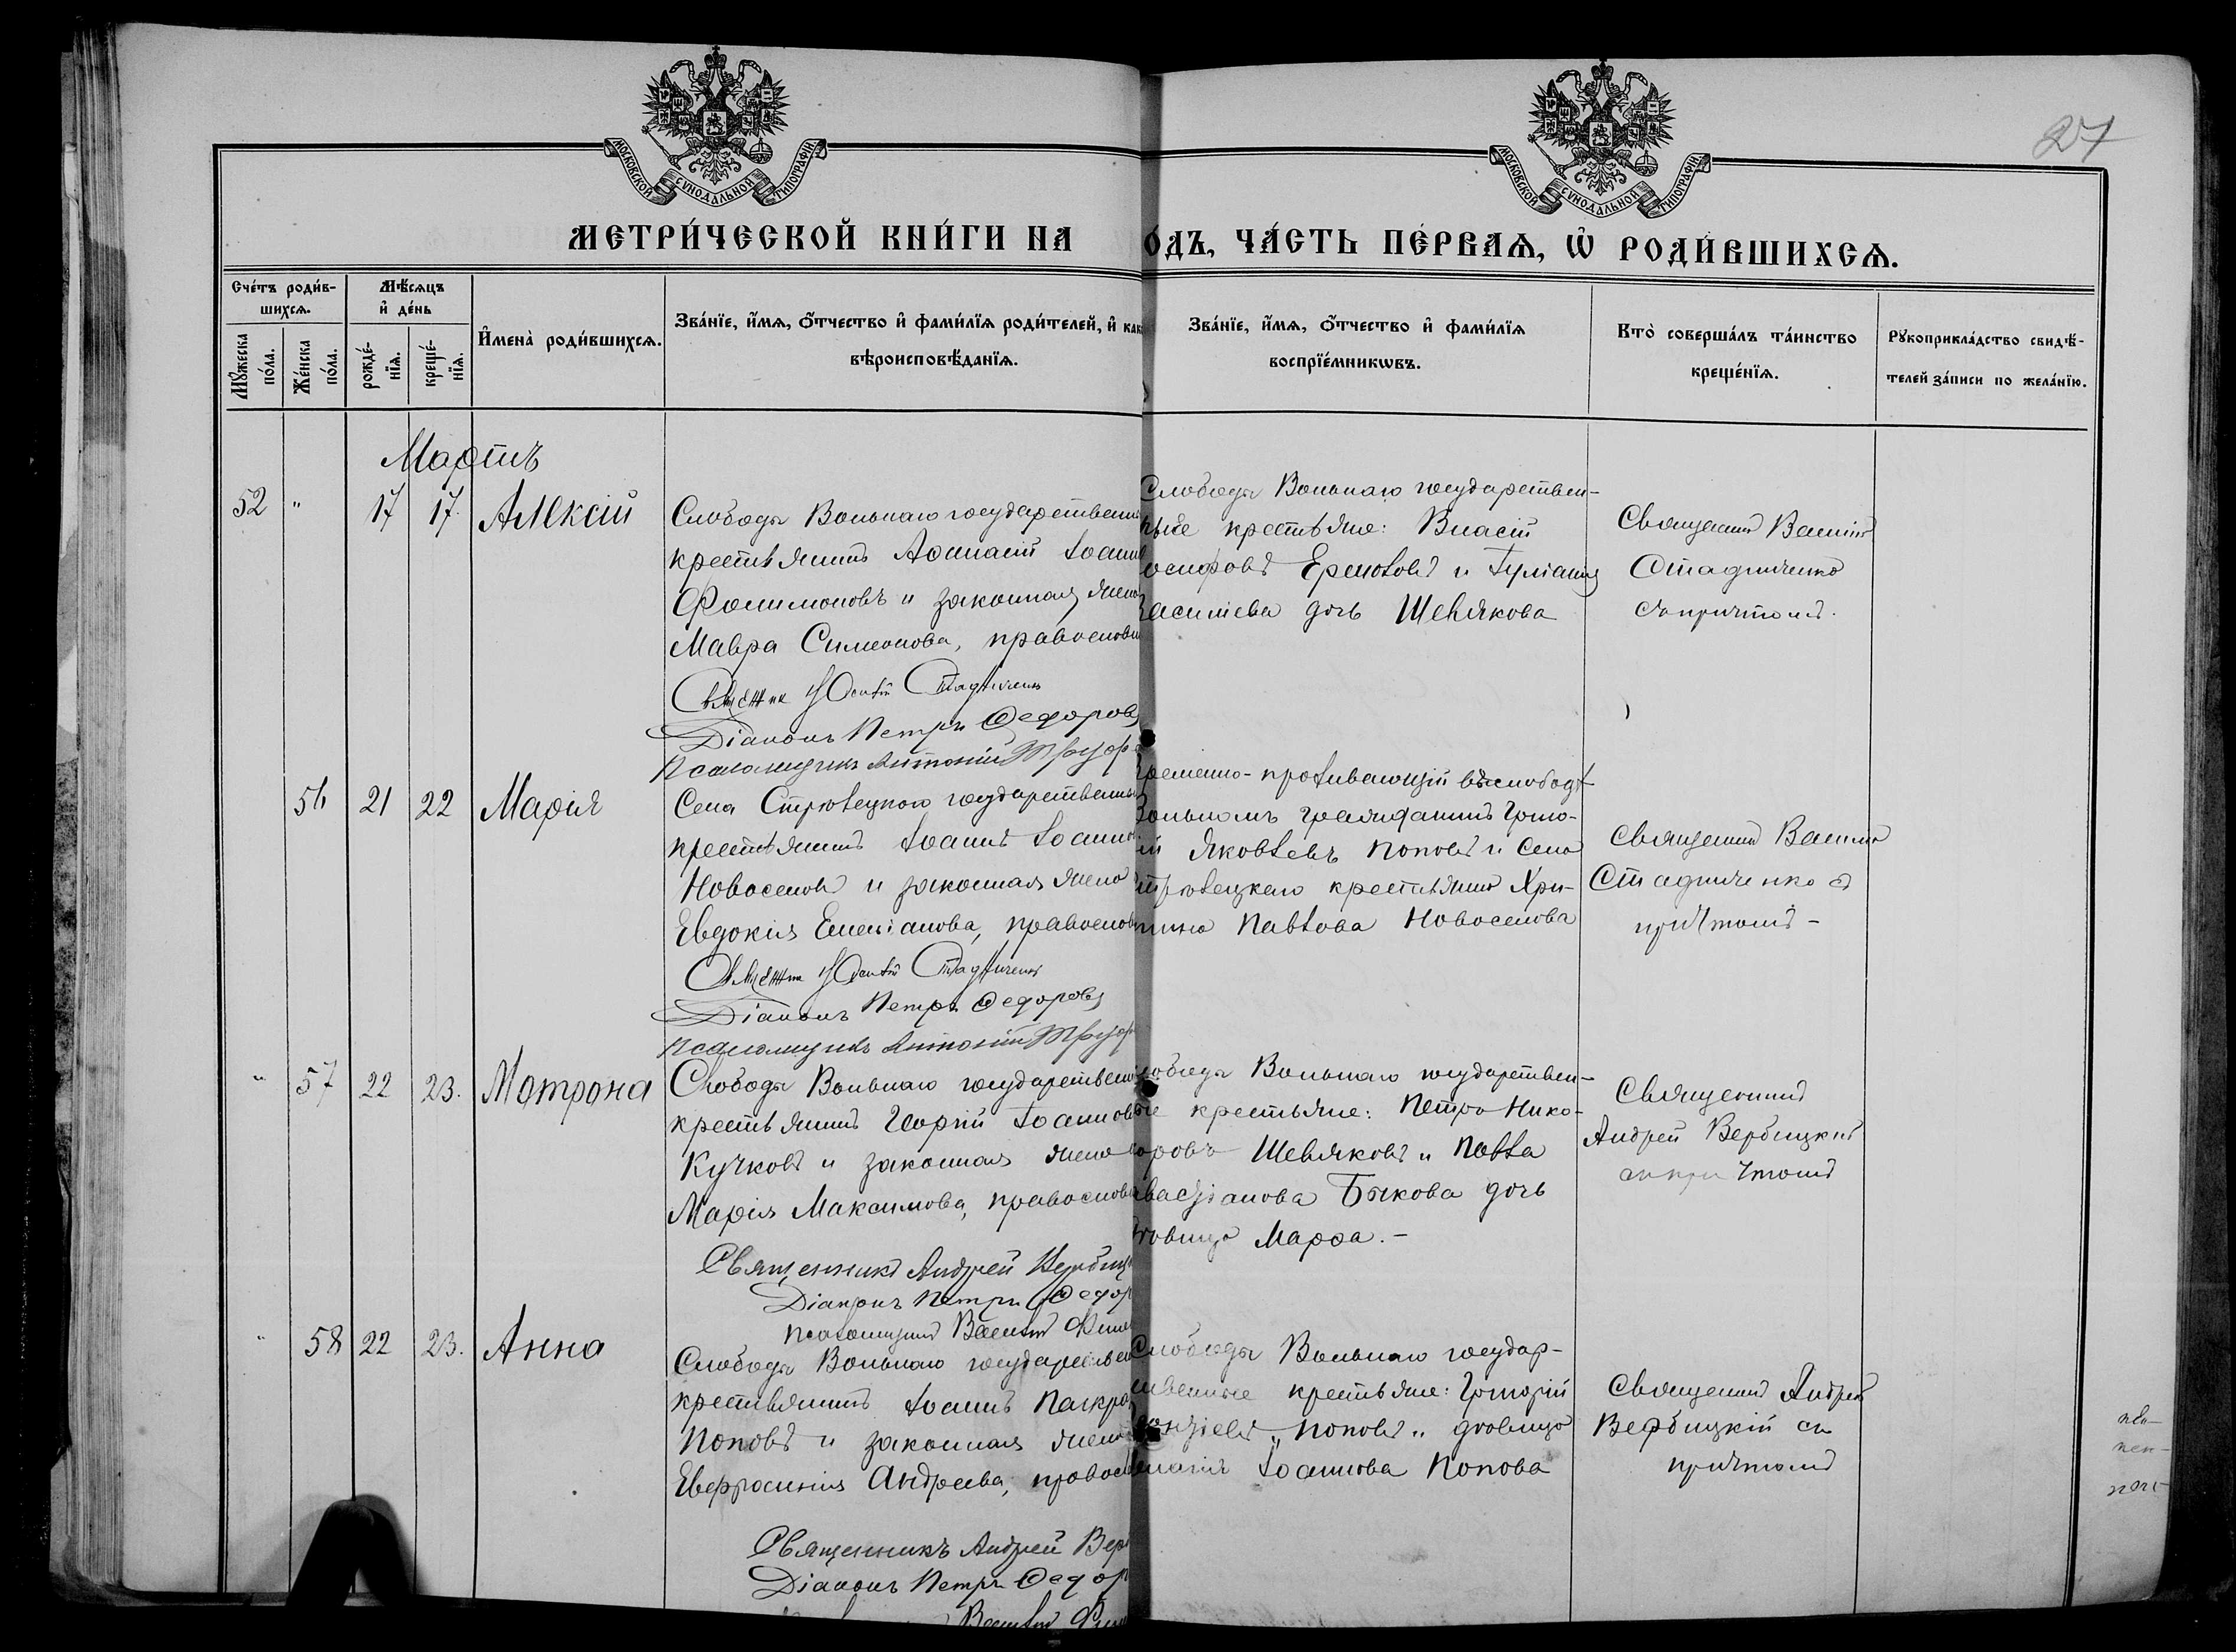 МОСКОВСКОЙ СѴНОДАЛЬНОЙ ТИПОГРАФІИ
МОСКОВСКОЙ СѴНОДАЛЬНОЙ ТИПОГРАФІИ
27
МЕТРИ́ЧЕСКОЙ КНИ́ГИ НА
О́ДЪ, ЧА́СТЬ ПЕ́РВАѦ, Ѡ҆ РОДИ́ВШИХСѦ.
Сче́тъ роди́в-
шихсѧ.
Мꙋ́жеска
по́ла.
Же́нска
по́ла.
Мѣ́сѧцъ
и҆ де́нь
рожде́-
нїѧ.
креще́-
нїѧ.
И҆мена̀ роди́вшихсѧ.
Зва́нїе, и҆́мѧ, о҆́тчество и҆ фами́лїѧ роди́телей, и҆ как
вѣроисповѣ́данїѧ.
Зва́нїе, и҆́мѧ, о҆́тчество и҆ фами́лїѧ
воспрїе́мникѡвъ.
Кто̀ соверша́лъ та́инство
креще́нїѧ.
Рꙋкоприкла́дство свидѣ́-
телей за́писи по жела́нїю.
Мартъ
52 " 17 17. Алексій
Слободы Вольнаго государственн
крестьянинъ Аѳанасій Іоанно
Филимоновъ и законная жена
Мавра Симеонова, православн
Діаконъ Петръ Ѳедоровъ
Псаломщикъ Антоній
Слободы Вольнаго государствен-
ные крестьяне: Власій
осифовъ и
асильева дочь Шевлякова
Священникъ Василій
Стадниченко
съ причтомъ.
56 21 22 Марія
Села государственны
крестьянинъ Іоаннъ Іоанно
Новоселовъ и законная жена
Евдокія Емеліанова, православ
Діаконъ Петръ Ѳедоровъ
Псаломщикъ Антоній
ременно-проживающій въ слободѣ
Вольномъ гражданинъ Григо-
ій Яковлевъ Поповъ и села
крестьянина Хри-
Павлова Новоселова
Священникъ Василій
Стадниченко съ
причтомъ-
" 57 22 23. Матрона
Слободы Вольнаго государственн
крестьянинъ Георгій Іоаннов
Кучковъ и законная жена
Марія Максимова, православ
Священникъ Андрей Вербиц
Діаконъ Петръ Ѳедор
Псаломщикъ Василій
лободы Вольнаго государствен-
ые крестьяне: Петръ Нико-
Шевляковъ и Павла
Быкова дочь
Марѳа.-
Священникъ
Андрей Вербицкій
съ причтомъ
" 58 22 23. Анна
Слободы Вольнаго государствен
крестьянинъ Іоаннъ
Поповъ и законная жена
Евфросинія Андреева, правосл
Священникъ Андрей Вер
Діаконъ Петръ Ѳедор
Василій
Слободы Вольнаго государ-
ственные крестьяне: Григорій
Поповъ и дѣвица
Іоаннова Попова
Священникъ Андрей
Вербицкій съ
причтомъ